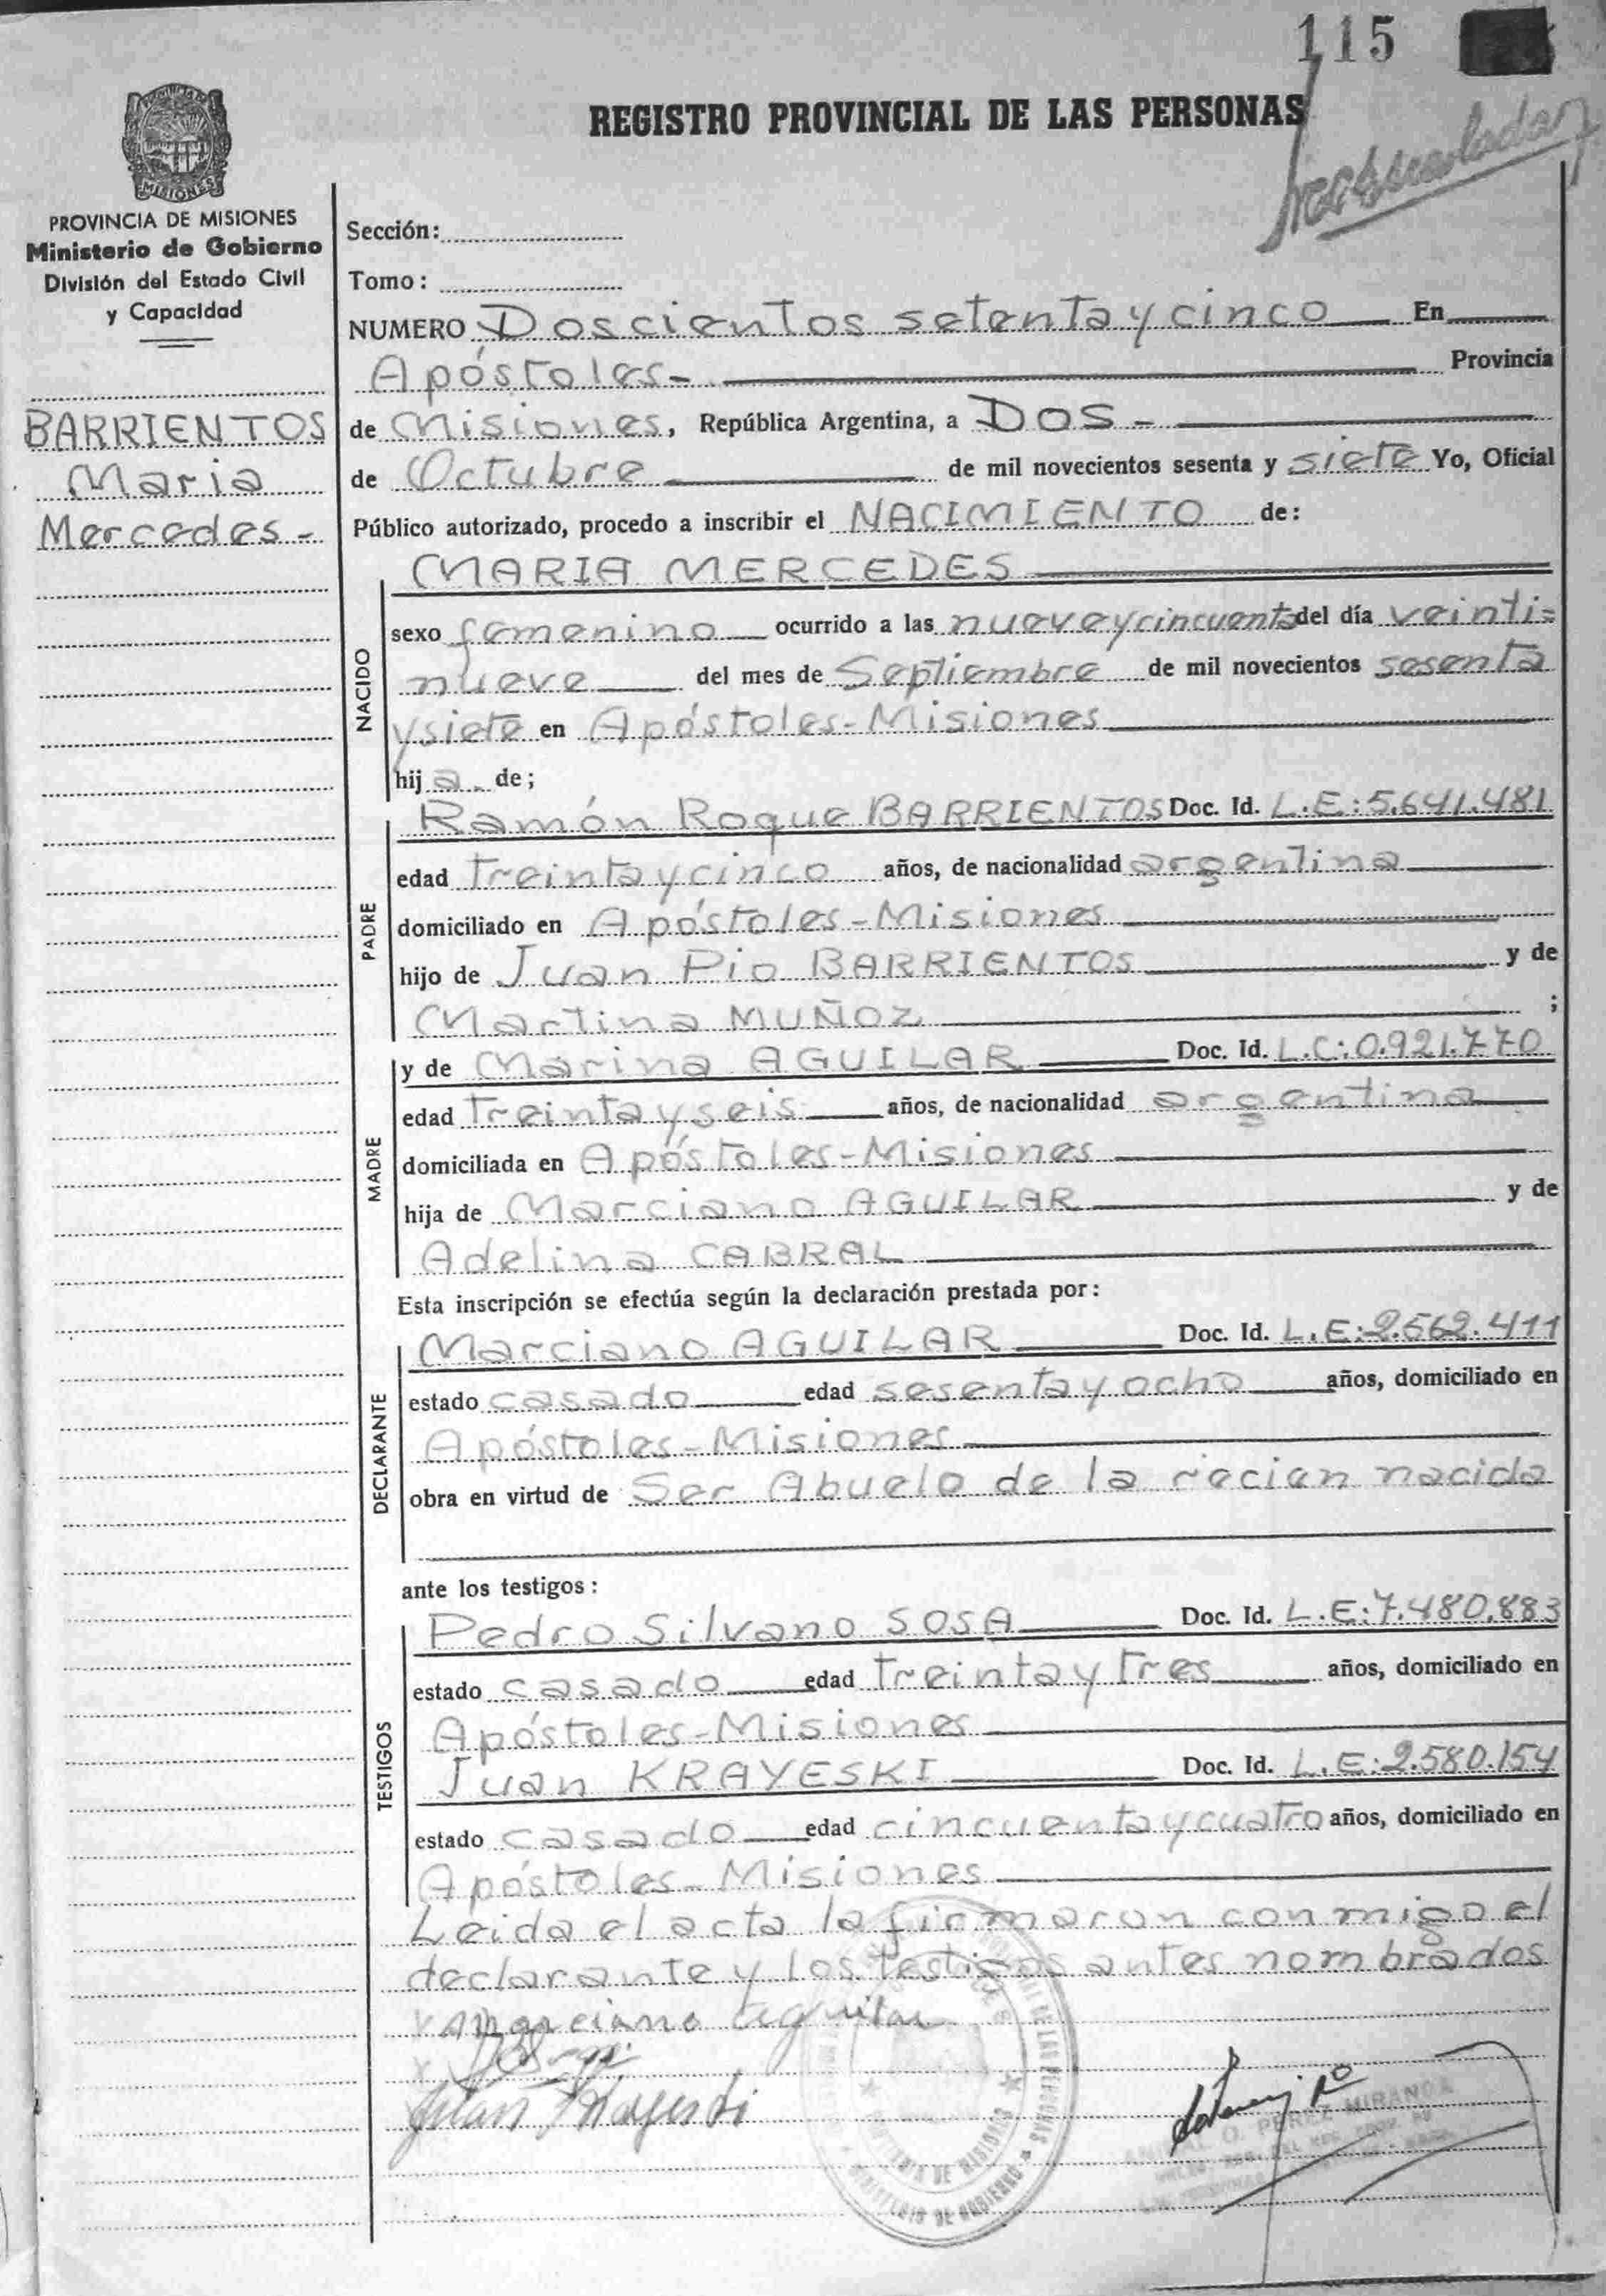 115
REGISTRO PROVINCIAL DE LAS PERSONAS
PROVINCIA DE MISIONES
Ministerio de Gobierno
División del Estado Civil
y Capacidad
BARRIENTOS
Maria
Mercedes -
Sección:
Tomo:
NUMERO Doscientos setenta y cinco En
Apóstoles - Provincia
de Misiones, República Argentina, a DOS -
de Octubre de mil novecientos sesenta y siete Yo, Oficial
Público autorizado, procedo a inscribir el NACIMIENTO de:
MARIA MERCEDES
NACIDO
sexo femenino ocurrido a las nueve y cincuenta del día veinti=
nueve del mes de Septiembre de mil novecientos sesenta
y siete en Apóstoles - Misiones
hija. de;
PADRE
Ramón Roque BARRIENTOS Doc. Id. L.E: 5.641.481
edad Treinta y cinco años, de nacionalidad argentina
domiciliado en Apóstoles - Misiones
hijo de Juan Pio BARRIENTOS y de
Martina MUÑOZ ;
MADRE
y de Marina AGUILAR Doc. Id. L.C: 0.921.770
edad Treinta y seis años, de nacionalidad argentina
domiciliada en Apóstoles - Misiones
hija de Marciano AGUILAR y de
Adelina CABRAL
Esta inscripción se efectúa según la declaración prestada por:
DECLARANTE
Marciano AGUILAR Doc. Id. L.E: 2.562.411
estado casado edad sesenta y ocho años, domiciliado en
Apóstoles - Misiones
obra en virtud de Ser Abuelo de la recien nacida
ante los testigos:
TESTIGOS
Pedro Silvano SOSA Doc. Id. L.E: 7.480.883
estado casado edad Treinta y Tres años, domiciliado en
Apóstoles - Misiones
Juan KRAYESKI Doc. Id. L.E: 2.580.154
estado casado edad cincuenta y cuatro años, domiciliado en
Apóstoles - Misiones
Leida el acta la firmaron conmigo el
declarante y los testigos antes nombrados
Marciano Aguilar
Juan Krayeski
O. PEREZ MIRANDA
DE LAS PERSONAS
PROVINCIA DE MISIONES
MINISTERIO DE GOBIERNO